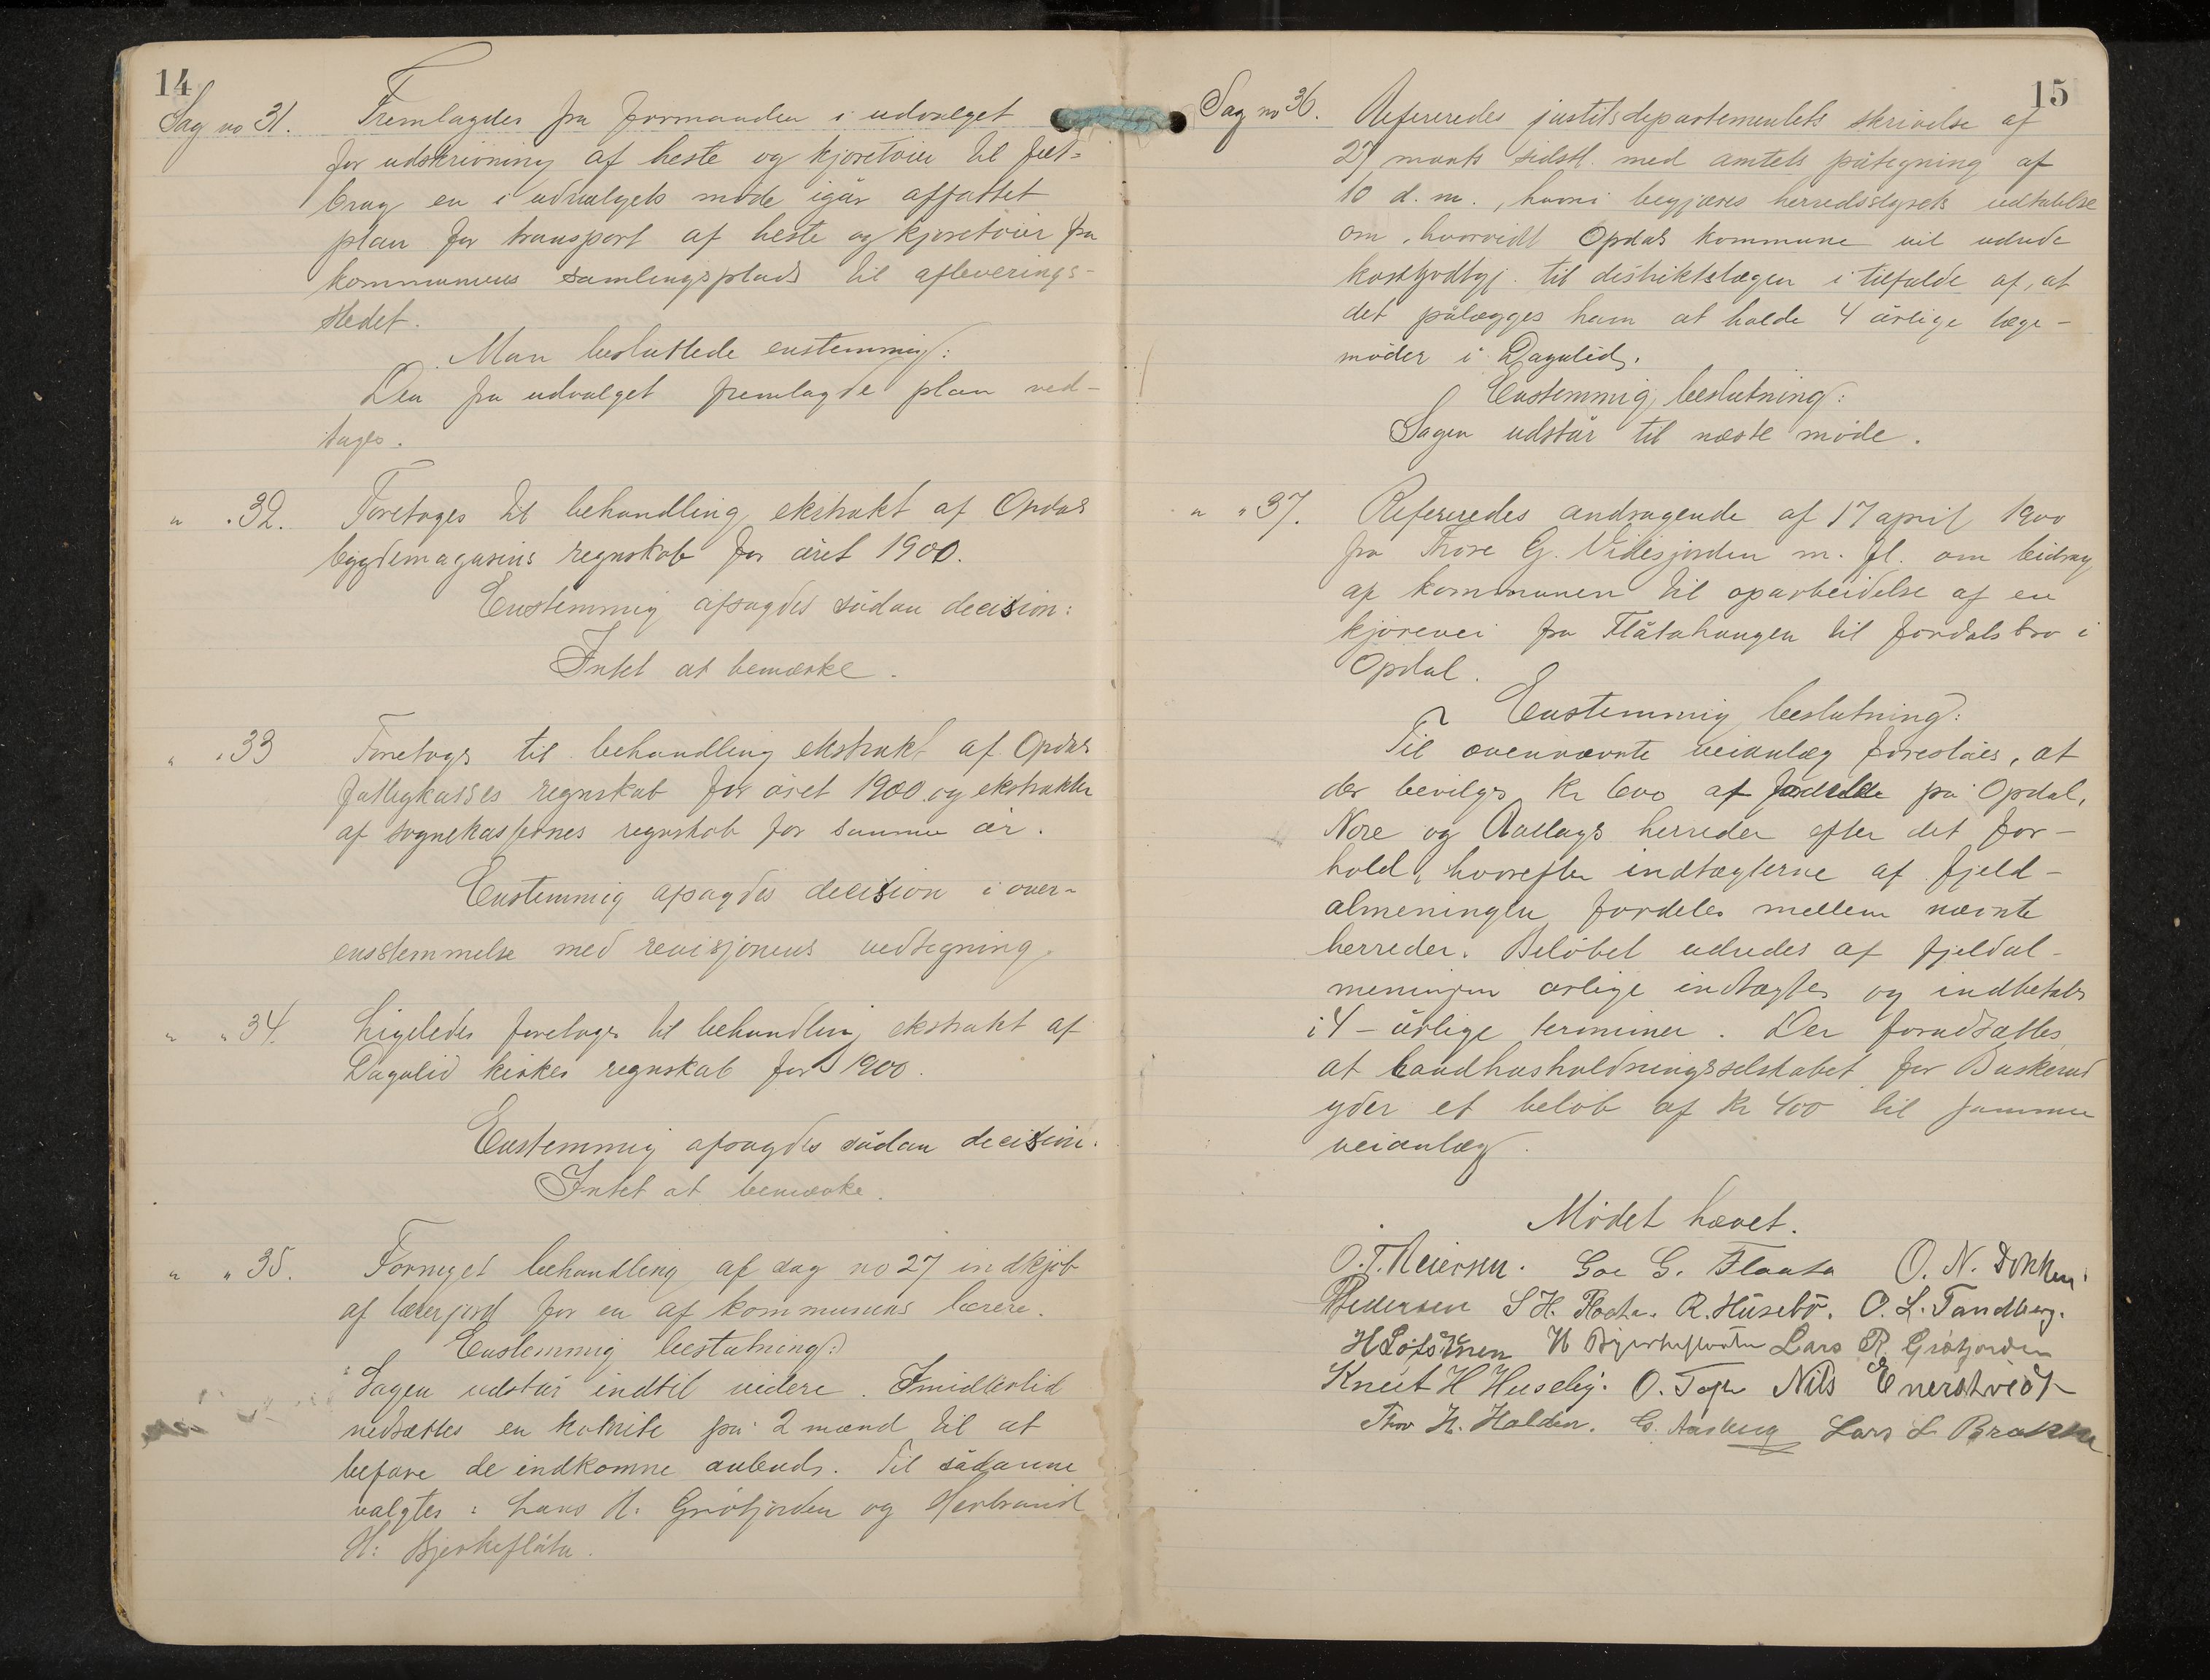 14
Sag no 31. Fremlagdes fra formanden i udvalget
for udskrivning af heste og kjøretøier til felt-
brug en i udvalgets møde igår affattet
plan for transport af heste og kjøretøier fra
kommunens samlingsplads til afleverings-
stedet.
Man besluttede enstemmig:
Den fra udvalget fremlagde plan ved-
tages.
" " 32. Foretoges til behandling ekstrakt af Opdals
bygdemagasins regnskab for året 1900.
Enstemmig afsagdes sådan decision:
Intet at bemærke.
" " 33 Foretoges til behandling ekstrakt af Opdals
fattigkasses regnskab for året 1900 og ekstrakter
af sognekassernes regnskab for samme år.
Enstemmig afsagdes decision i over-
ensstemmelse med revisjonens vedtegning.
" " 34. Ligeledes foretoges til behandling ekstrakt af
Dagalid kirkes regnskab for 1900.
Enstemmig afsagdes sådan decision:
Intet at bemærke.
" " 35. Fornyet behandling af sag no 27 indkjøb
af lærerjord for en af kommunens lærere.
Enstemmig beslutning:
Sagen udstår indtil videre. Imidlertid
nedsættes en komite på 2 mænd til at
befare de indkomne anbuds. Til sådanne
valgtes: Lars R. Grøtjorden og Herbrand
H. Bjerkeflåta.
15
Sag no 36. Refereredes justitsdepartementets skrivelse af
27 marts sidstl. med amtets påtegning af
10 d. m., hvori begjæres herredsstyrets udtalelse
om, hvorvidt Opdals kommune vil udrede
kostgodtgj. til distriktslægen i tilfælde af, at
det pålægges ham at holde 4 årlige læge-
møder i Dagalid.
Enstemmig beslutning:
Sagen udstår til næste møde.
" " 37. Refereredes andragende af 17 april 1900
fra Thore G. Vidisjorden m. fl. om bidrag
af kommunen til oparbeidelse af en
kjørevei fra Flåtahaugen til Jordalsbro i
Opdal.
Enstemmig beslutning:
Til ovennævnte veianlæg foreslåes, at
der bevilges Kr 600 at fordele på Opdal,
Nore og Rollags herreder efter det for-
hold, hvorefter indtægterne af fjeld-
almeningen fordeles mellem nævnte
herreder. Beløbet udredes af fjeldal-
meningen årlige indtægter og indbetales
i 4-årlige terminer. Der forudsættes
at Landhusholdningsselskabet for Buskerud
yder et beløb af Kr 400 til samme
veianlæg.
Mødet hævet.
O. T. Reiersen. Goe G. Flaata O. N. Dokken.
Pedersen S H. R. Husebø. O. L. Tandberg.
H H Bjerkeflaata Lars R. Grøtjorden
Knut H Huseby. O. Nils Enerstvedt
Thor H. Halden. G. Aasberg Lars L Brokke